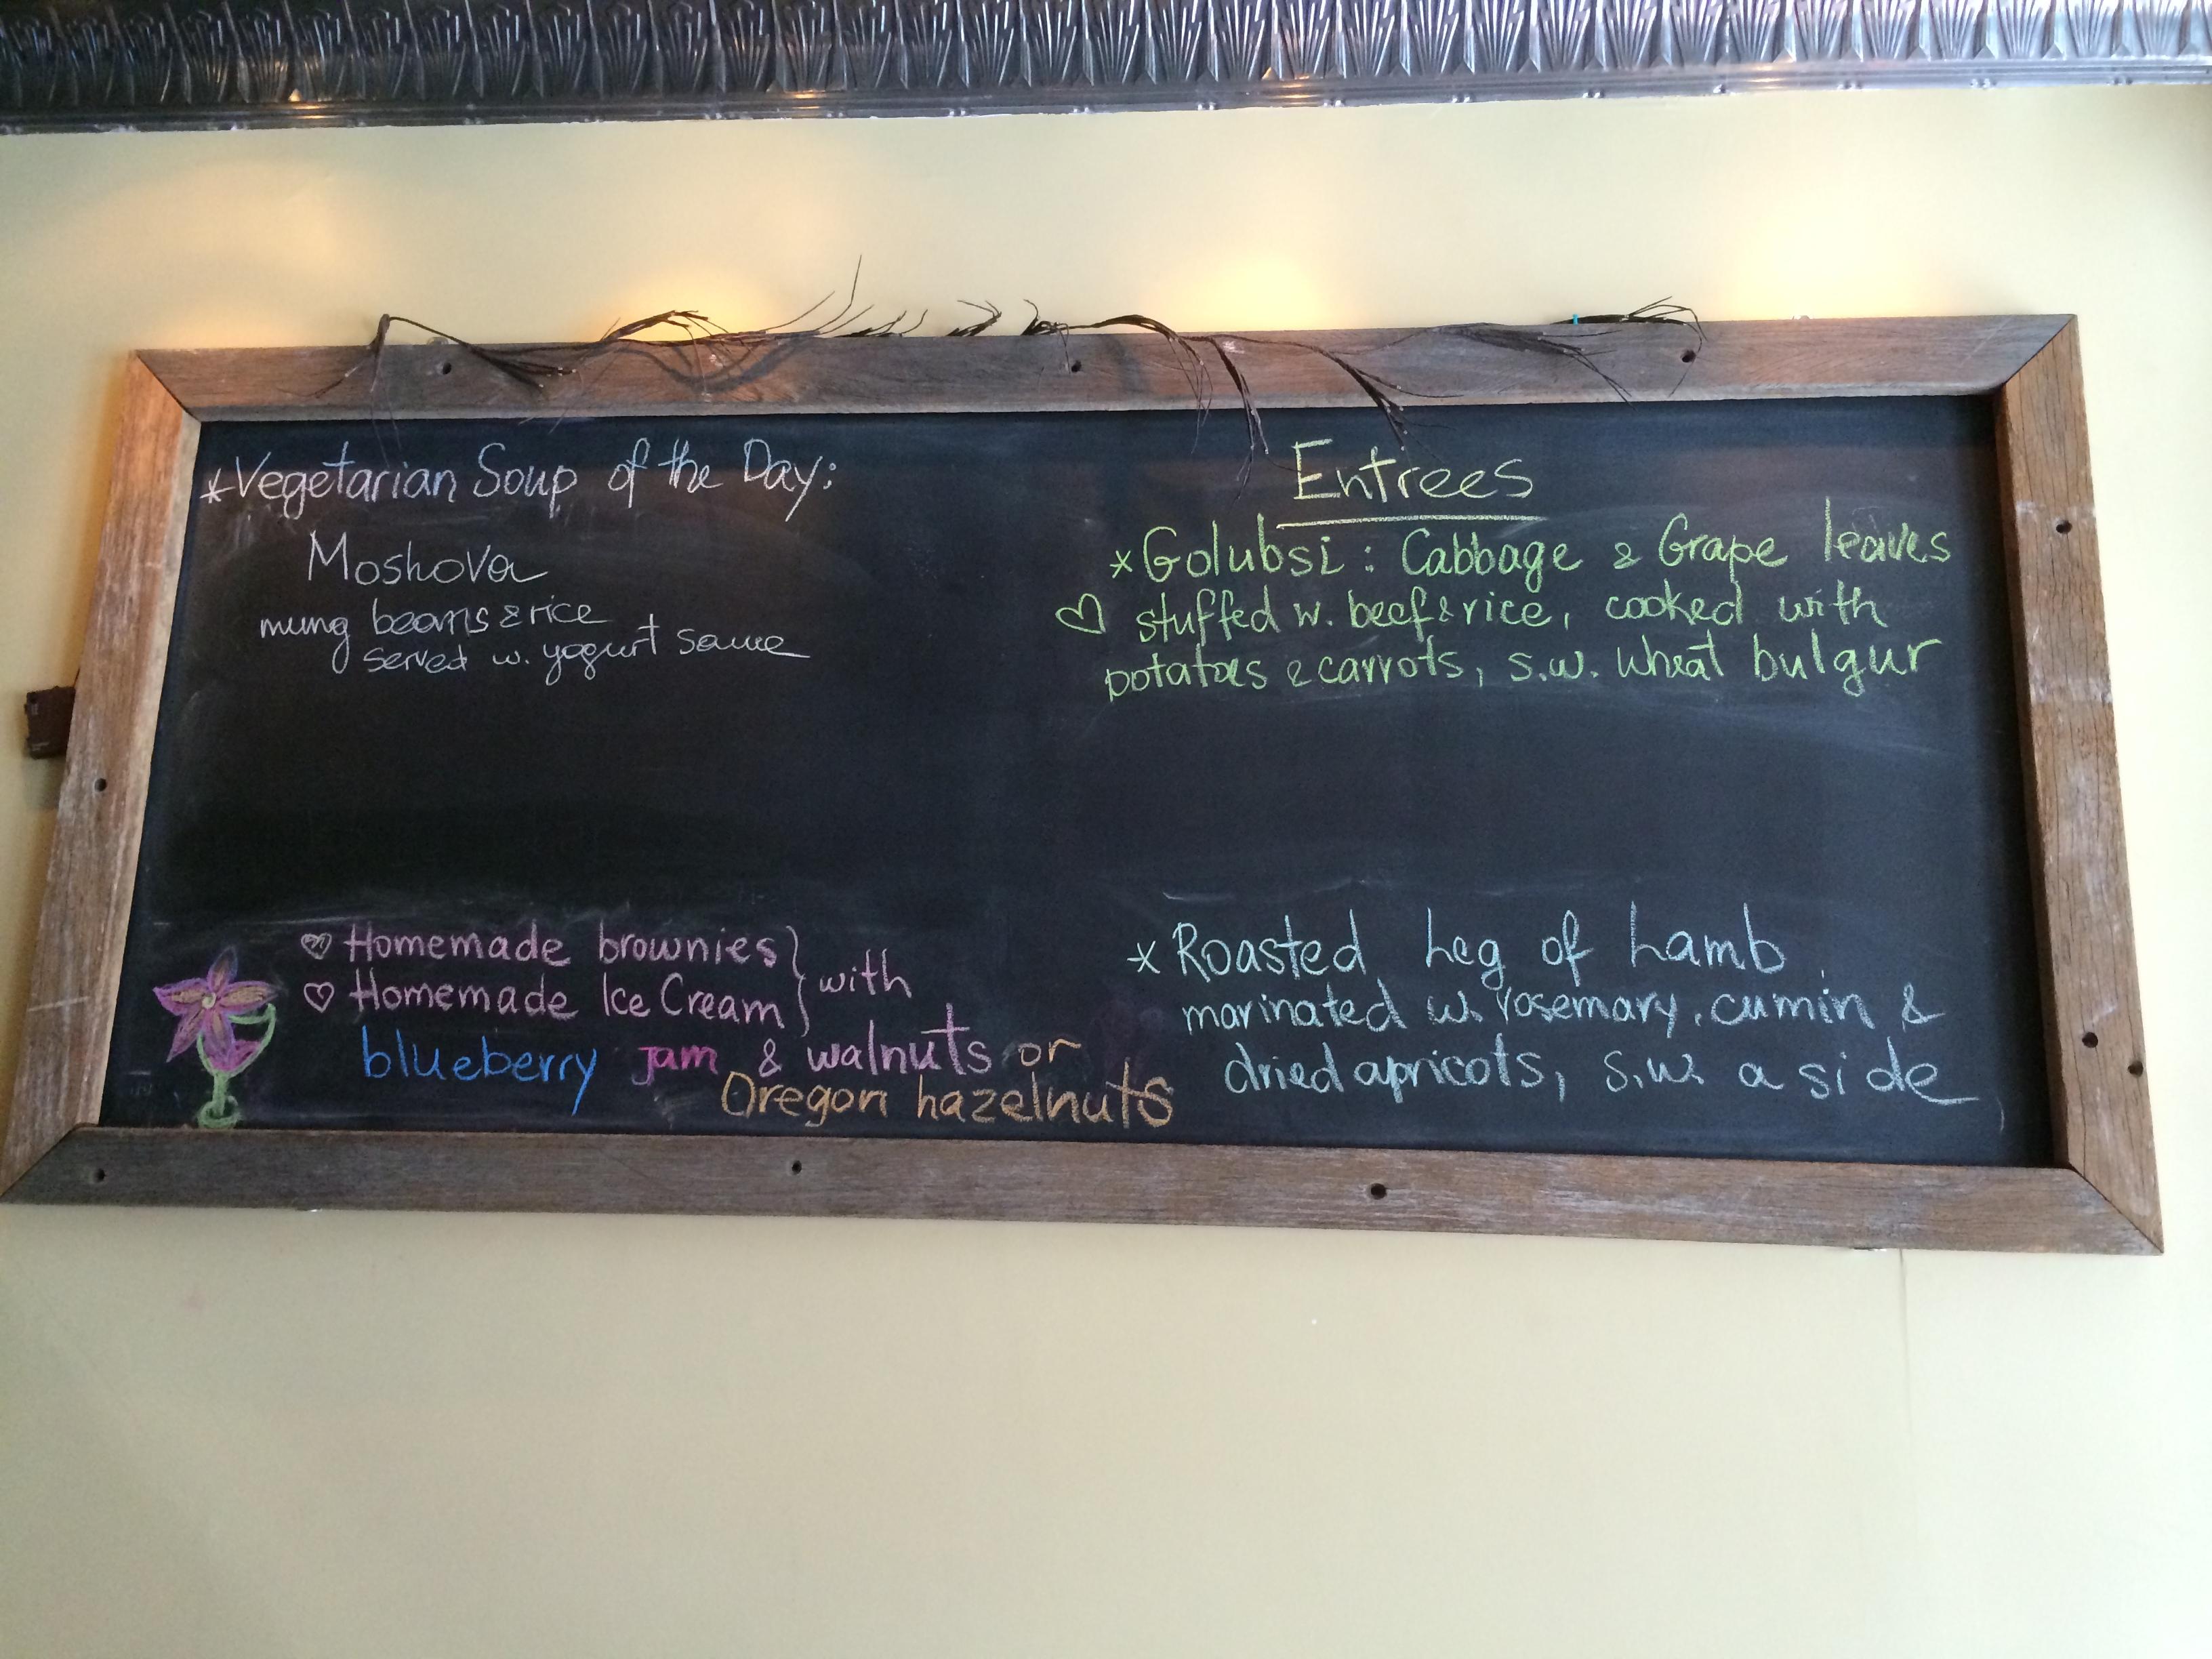 *Vegetarian Soup of the Day:
Moshova
mung beans & rice
served w. yogurt sauce
♡ Homemade brownies } with
♡ Homemade Ice Cream
blueberry jam & walnuts or
Oregon hazelnuts
Entrees
*Golubsi: Cabbage & Grape leaves
♡ stuffed w. beef & rice, cooked with
potatoes & carrots, s.w. wheat bulgur
*Roasted Leg of Lamb
marinated w. rosemary, cumin &
dried apricots, s.w. a side